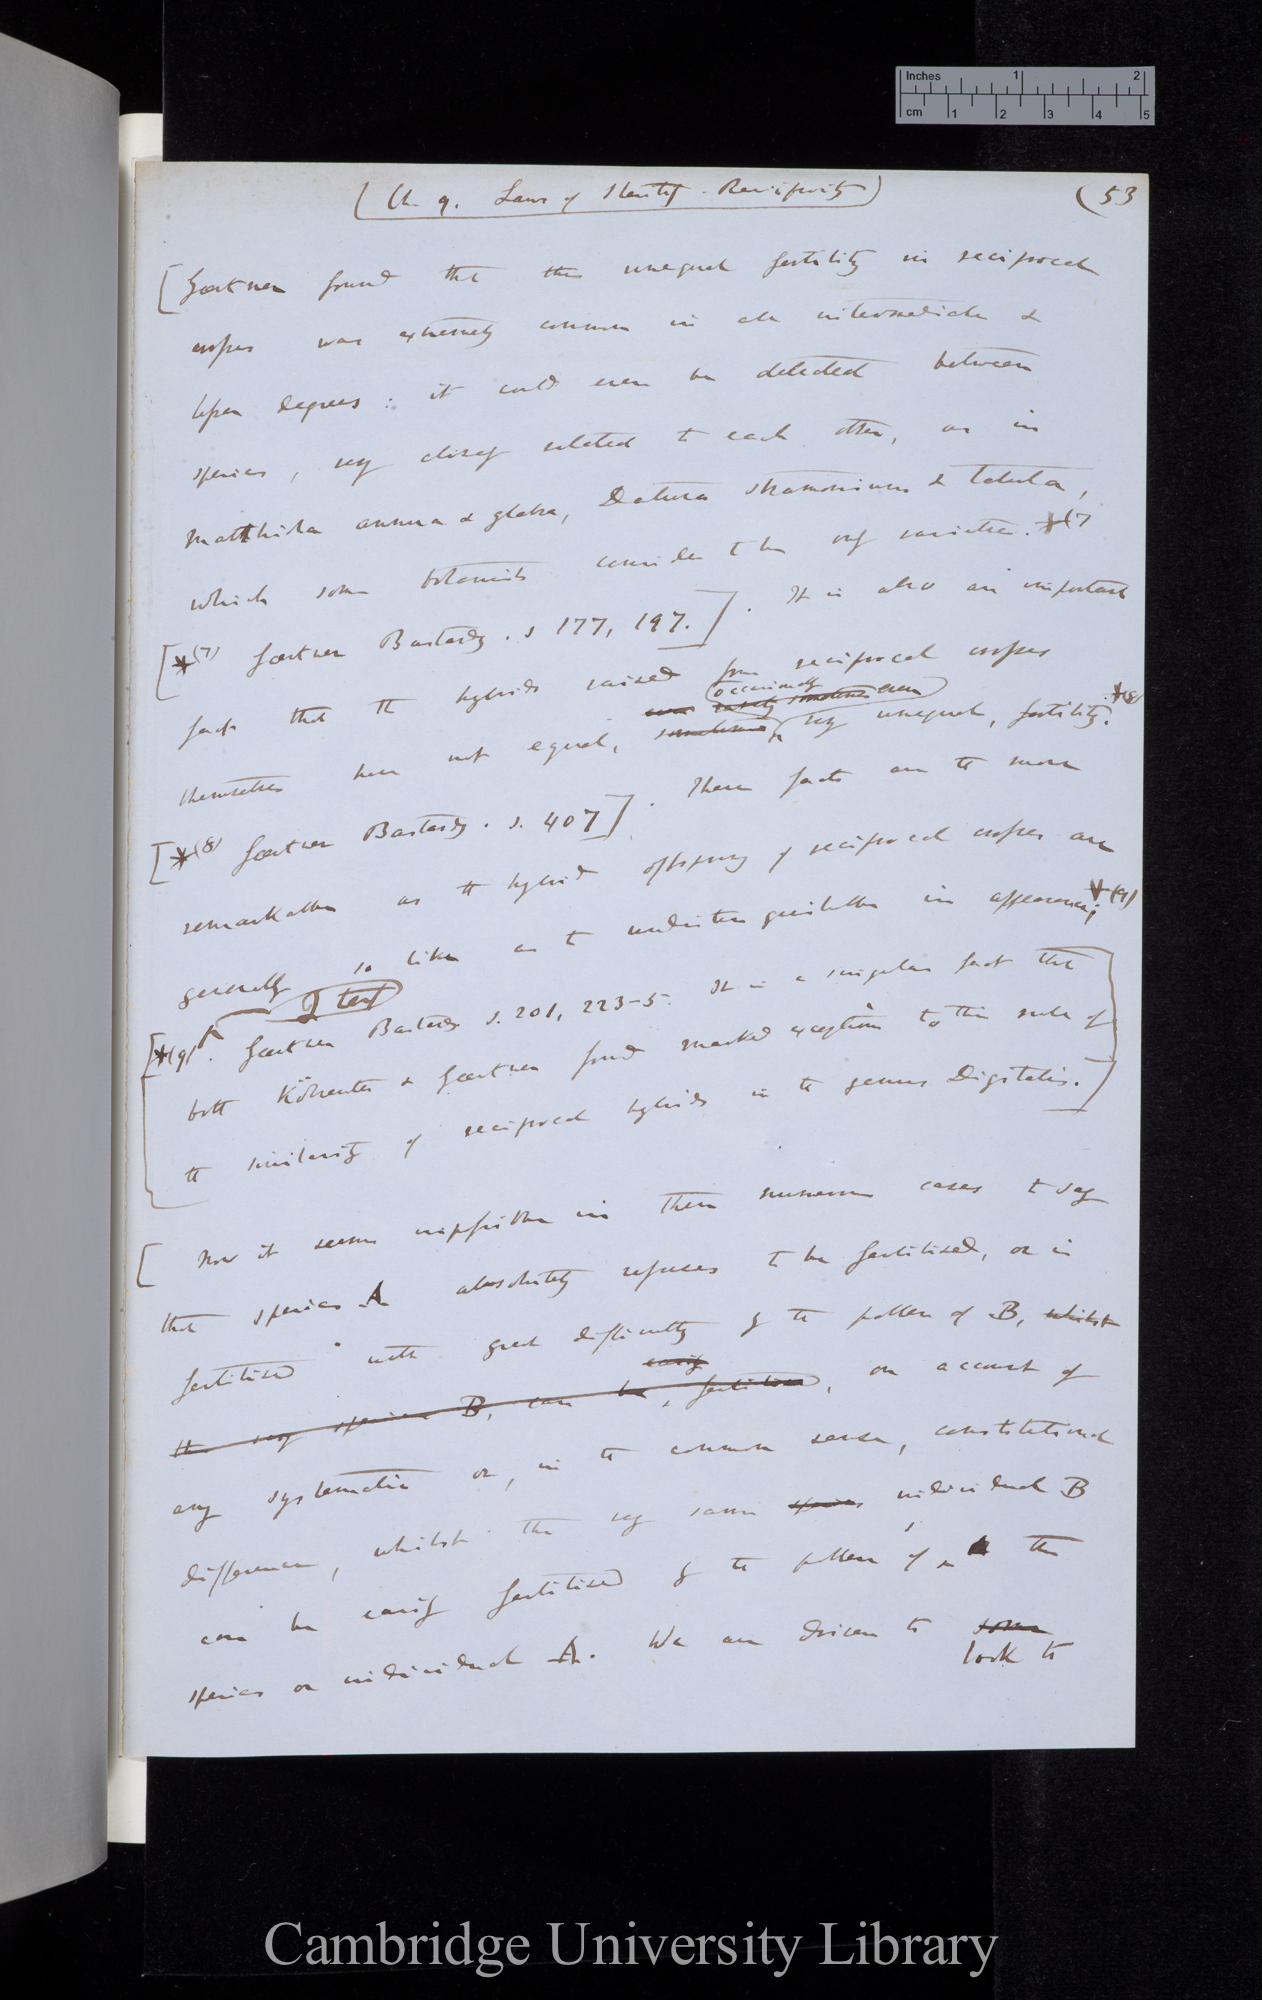 Inches 1 2
cm 1 2 3 4 5
(Ch. 9. Laws of Sterility. Reciprocity)
(53
[Gærtner found that this unequal fertility in reciprocal
crosses was extremely common in all intermediate &
lesser degrees: it could even be detected between
species, very closely related to each other, as in
Matthiola annua & glabra, Datura stramonium & tatula,
which some botanists consider to be only varieties. *(7
[*(7) Gærtner Bastardz. s 177, 197.]. It is also an important
fact that the hybrids raised from reciprocal crosses
occasionally rarely sometimes even
themselves have not equal, sometimes very unequal, fertility. *(8)
[*(8) Gærtner Bastardz. s. 407]. These facts are the more
remarkable as the hybrid offspring of reciprocal crosses are
generally so like as to undistinguishable in appearance; *(9)
text
[*(9). Gærtner Bastardz s. 201, 223-5. It is a singular fact that
both Kölreuter & Gærtner found marked exceptions to this rule of
the similarity of reciprocal hybrids in the genus Digitalis.]
[Now it seems impossible in these numerous cases to say
that species A absolutely refuses to be fertilised, or is
fertilised with great difficulty by the pollen of B, whilst
easily
the very species B, can be, fertilised, on account of
any systematic or, in the common sense, constitutional
difference, whilst the very same species individual B
can be easily fertilised by the pollen of the
species or individual A. We are driven to some
look to
Cambridge University Library